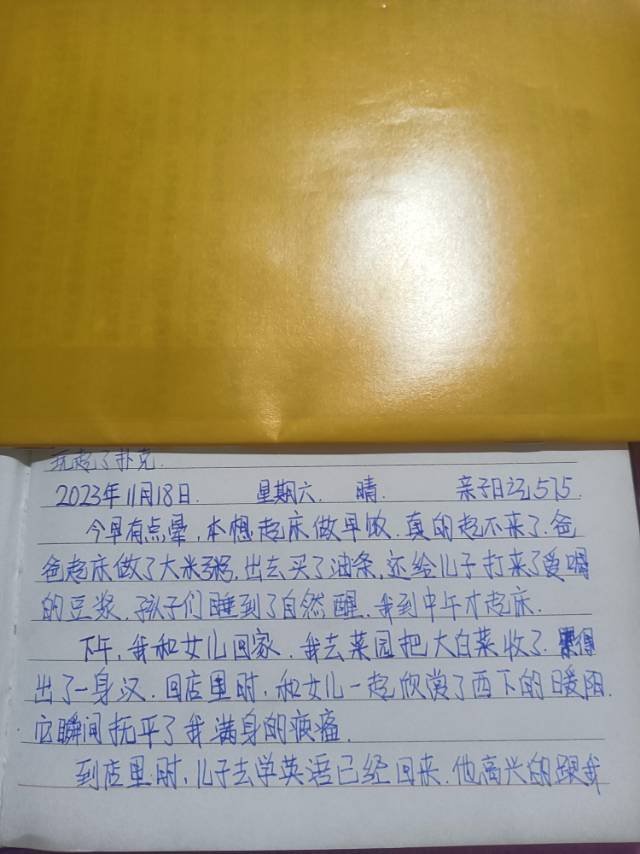 玩起了扑克.
2023年11月18日. 星期六. 晴. 亲子日记575.
今早有点晕,本想起床做早饭.真的起不来了.爸
爸起床做了大米粥,出去买了油条,还给儿子打来了爱喝
的豆浆.孩子们睡到了自然醒.我到中午才起床.
下午,我和女儿回家.我去菜园把大白菜收了.累得
出了一身汉.回店里时,和女儿一起欣赏了西下的暖阳.
它瞬间抚平了我满身的疲惫.
到店里时,儿子去学英语已经回来.他高兴的跟我